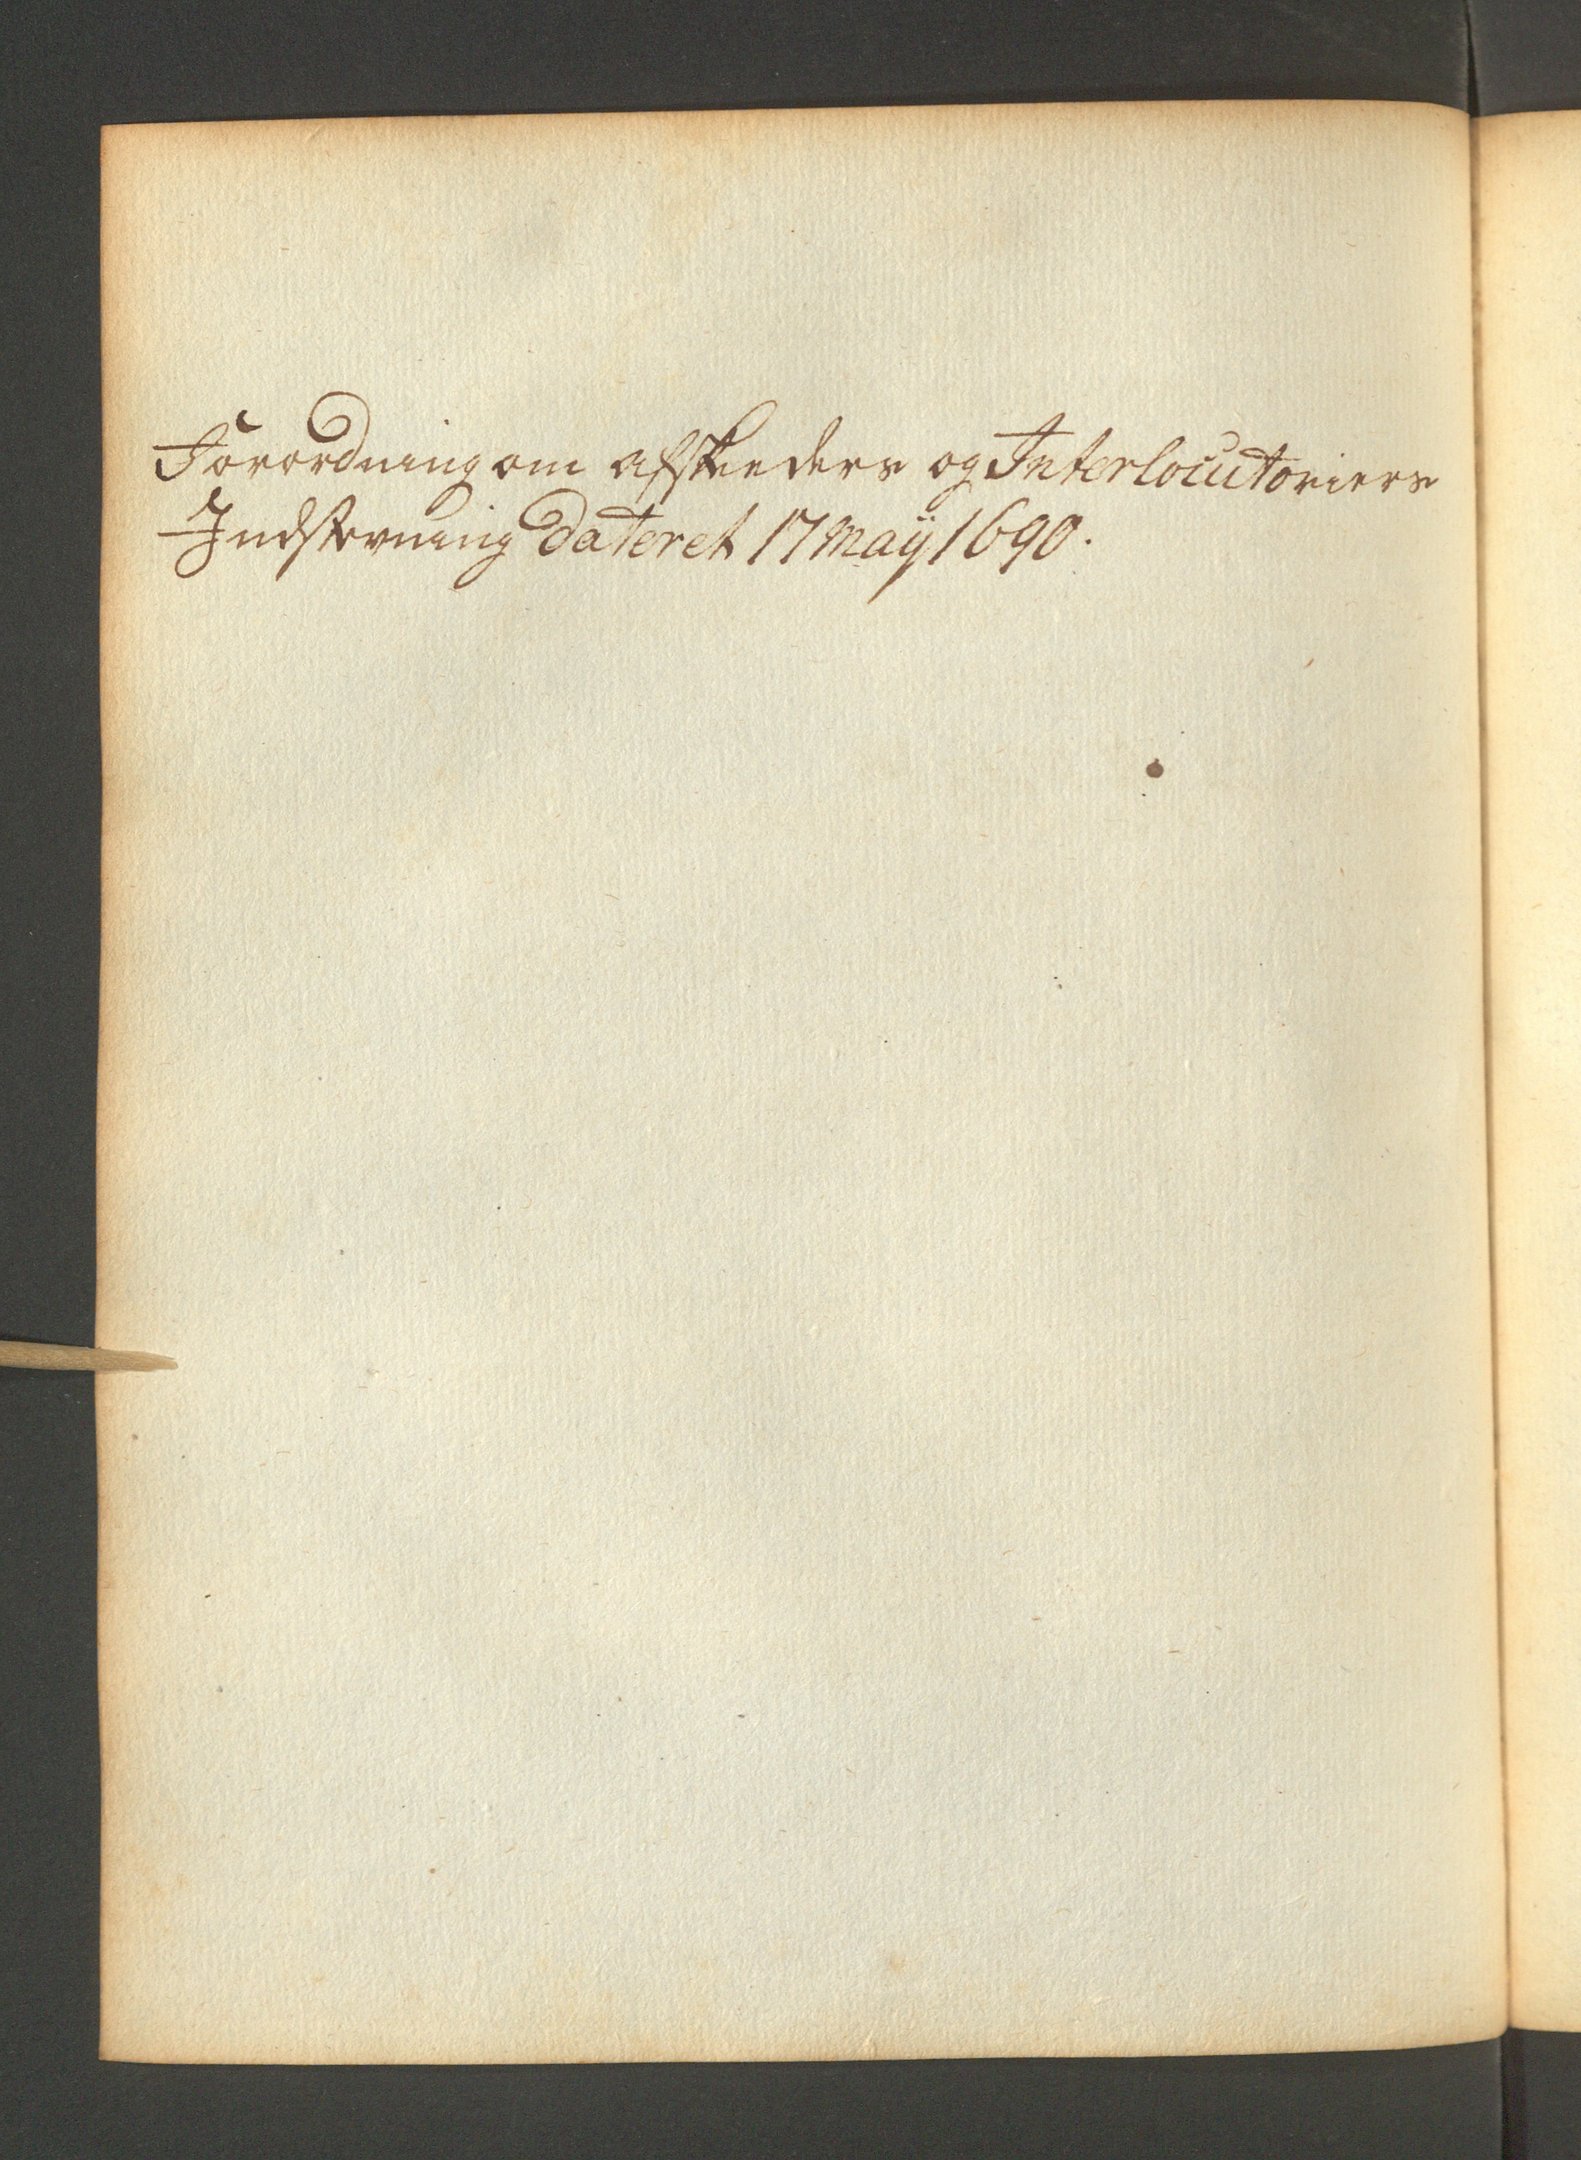 Forordning om afskeeders og Interlocutoriers
Indstevning dateret 17 maÿ 1690.